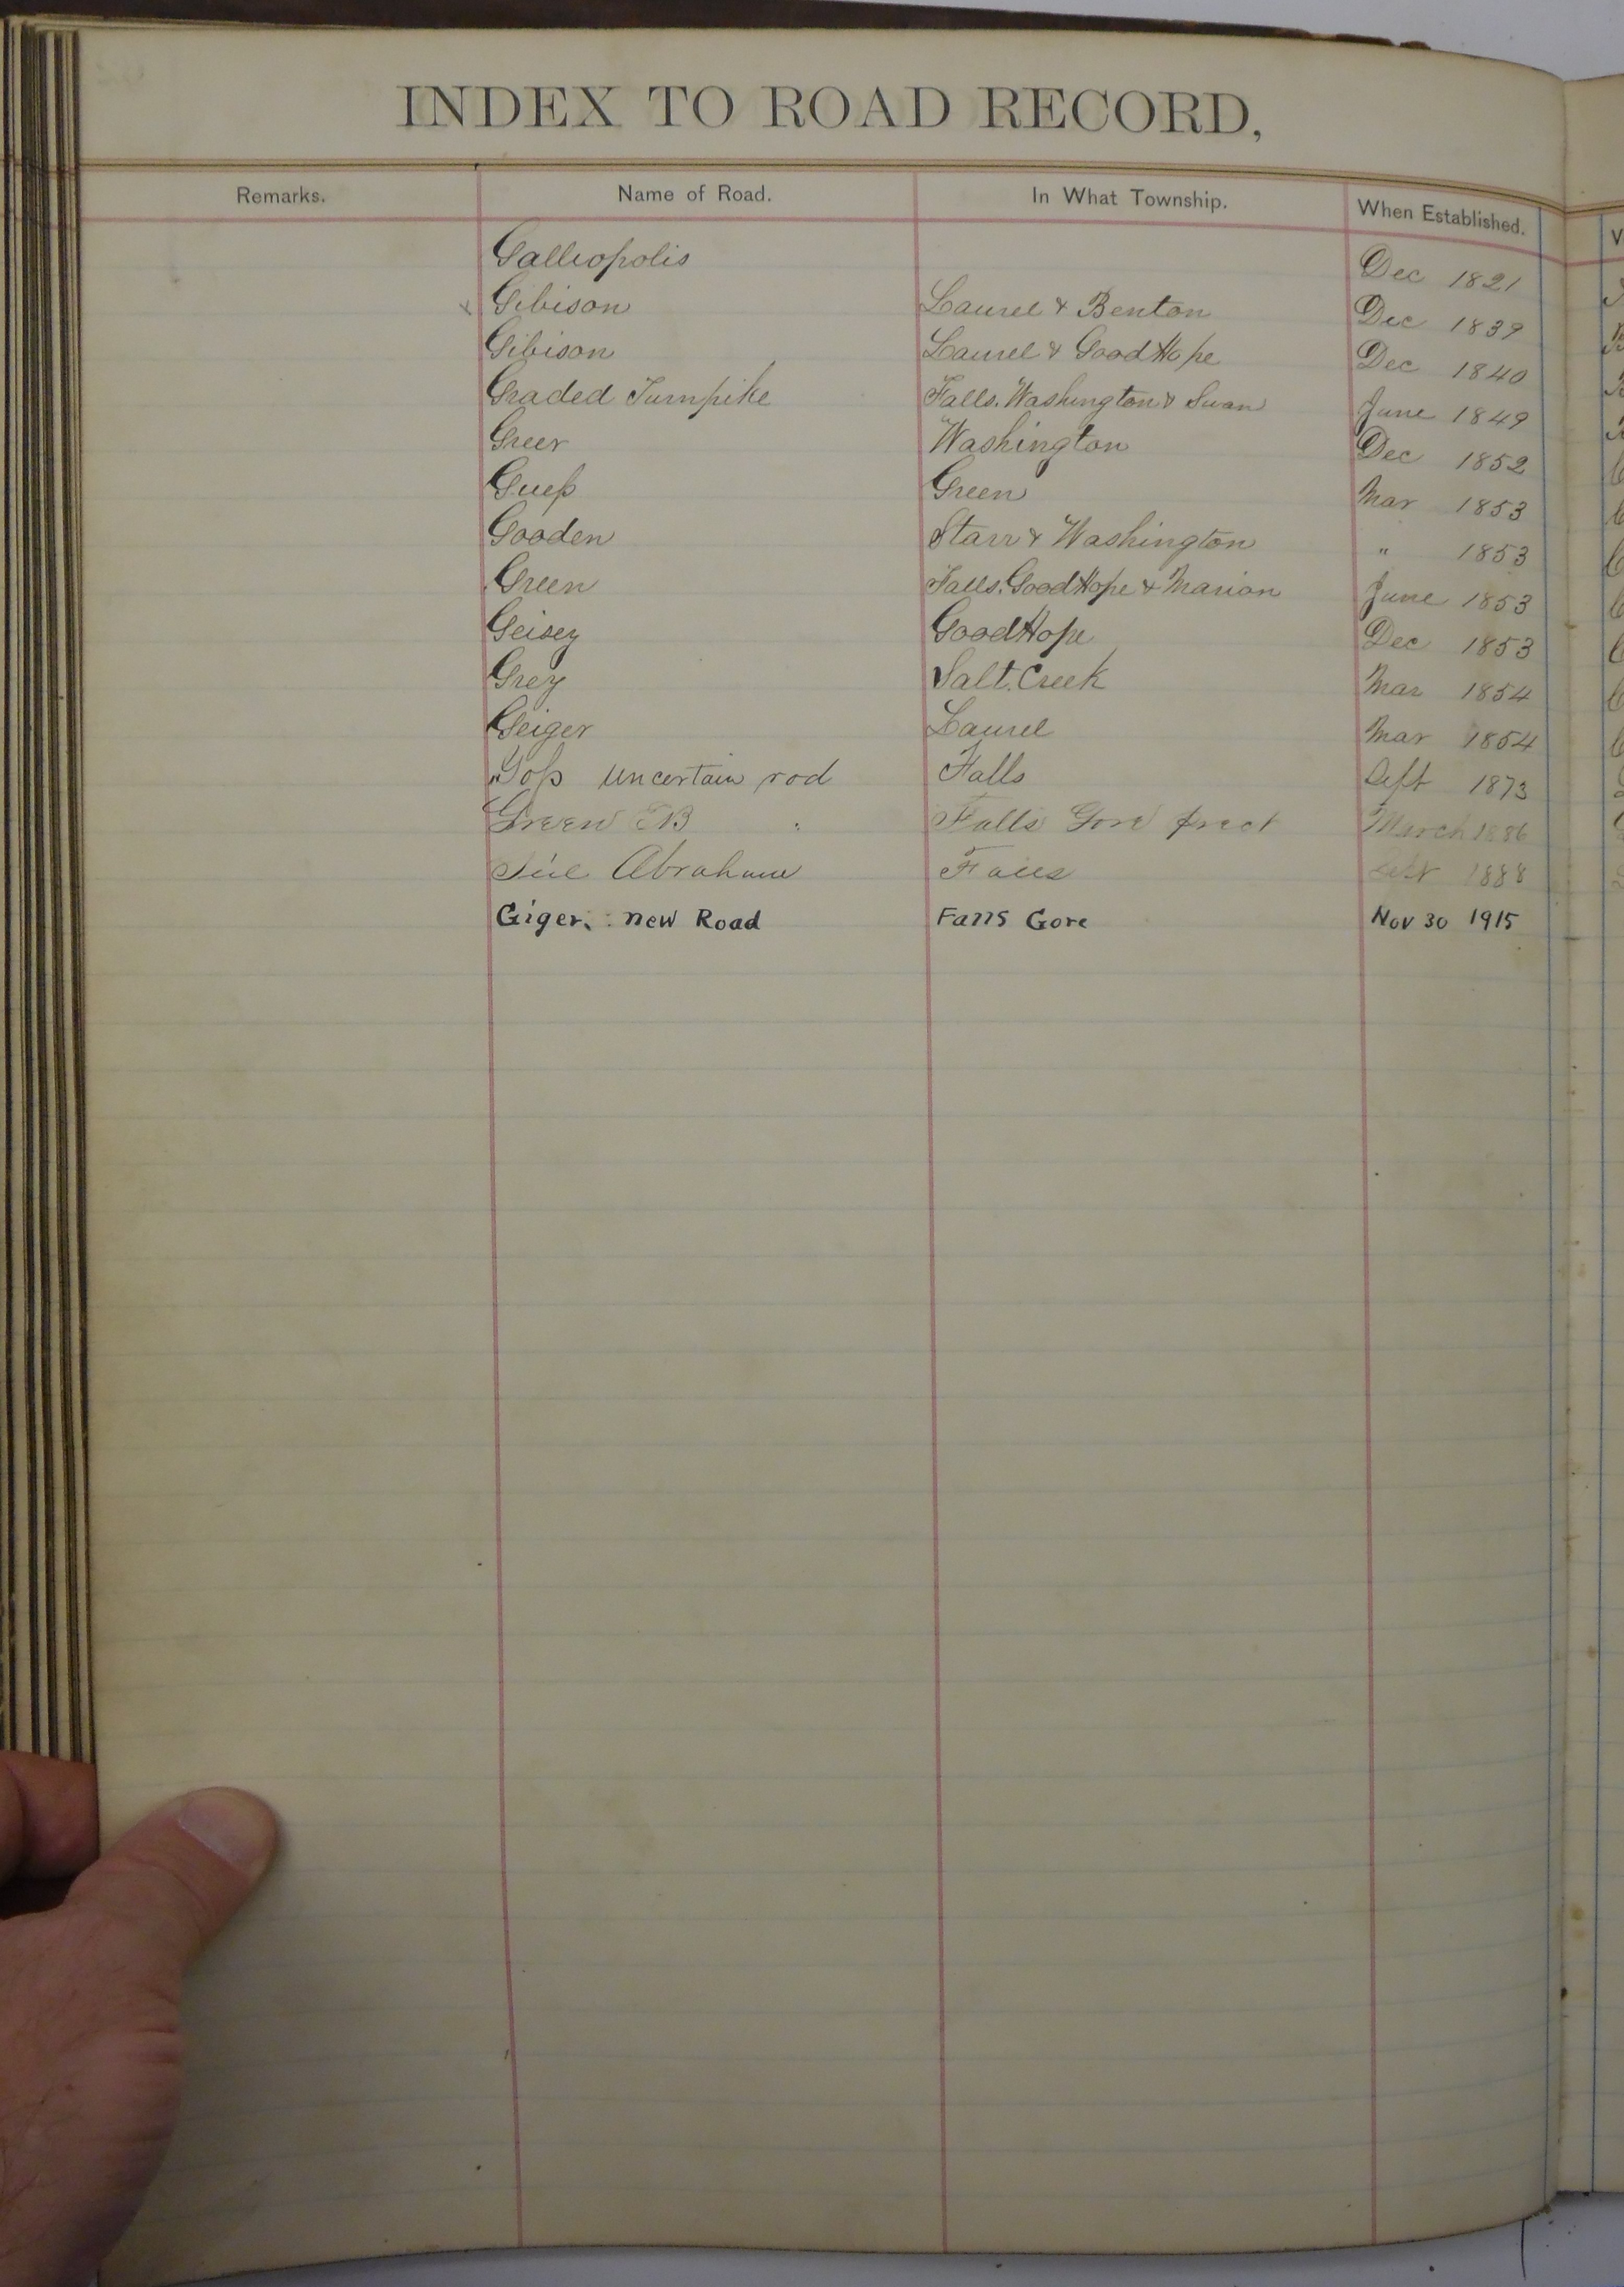 INDEX TO ROAD RECORD,
Remarks. Name of Road. In What Township. When Established.
Galliopolis Dec 1821
x Gibison Laurel & Benton Dec 1839
Gibison Laurel & Good Hope Dec 1840
Graded Turnpike Falls. Washington & Swan June 1849
Greer Washington Dec 1852
Guess Green Mar 1853
Gooden Starr & Washington " 1853
Green Falls. Good Hope & Marion June 1853
Geisey Good Hope Dec 1853
Grey Salt. Creek Mar 1854
Geiger Laurel Mar 1854
Goss uncertain rod Falls Sept 1873
Green EB Falls Gore prect March 1886
Abraham Falls Sept 1888
Giger. new Road Falls Gore Nov 30 1915